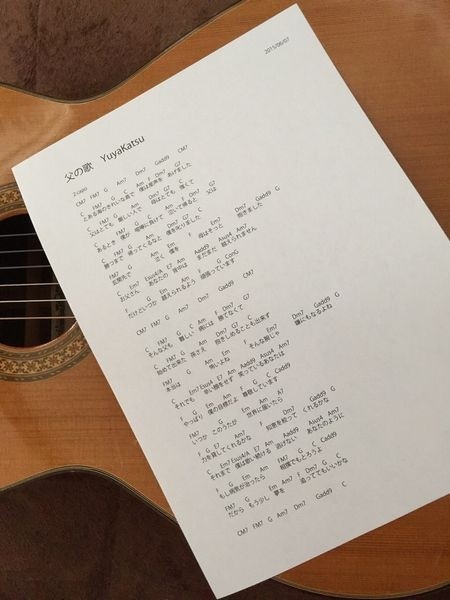 2015/06/07
父の歌 YuyaKatsu
2capo
CM7 FM7 G Am7 Dm7 Gadd9 CM7
C FM7 G C Am F Dm7 G7
とある海のきれいな島で 僕は産声を あげました
C FM7 G Am Dm7 G7 C
父はとても 厳しい人で 母はとても 優くて
C FM7 G C Am F Dm7 G7
あるとき 僕が 喧嘩に負けて 泣いて帰ると 父は
C FM7 G Am Dm7 G7 C
勝つまで 帰ってくるなと 僕を叱りました
FM7 G Am Em F Em Dm7 Gadd9 G
玄関先で 泣く 僕を 母はそっと 抱きました
C Em7 Esus4/G E7 Am Aadd9 Asus4 Am7
お父さん あなたの 背中は まだまだ 越えられません
F G Em Am F G ConG
だけどいつか 越えられるよう 頑張っています
CM7 FM7 G Am7 Dm7 Gadd9 CM7
C FM7 G C Am F Dm7 G7
そんな父も 難しい 病には 勝てなくて
C FM7 G Am Dm7 G7 C
初めて出来た 孫さえ 抱きしめることも出来ず
FM7 G Am Em F Em Dm7 Gadd9 G
本当は 怖いよね そんな腕じゃ 嫌にもなるよね
C Em7 Esus4 E7 Am Aadd9 Asus4 Am7
それでも 辛い顔をせず 笑っているあなたは
F G Em Am F G C Cadd9
やっぱり 僕の目標だよ 尊敬しています
FM7 G Em Am A7
いつか このうたが 世界に届いたら
F G E7 Am7 F Dm7 Gadd9 G
力を貸してくれるかな 知恵を絞って くれるかな
C Em7 Esus4/A E7 Am Aadd9 Asus4 Am7
それまで 僕は歌い続ける 逃げない あなたのように
FM7 G Em Am FM7 G C Cadd9
もし病気が治ったら 相撲でもとろうよ
FM7 G Em Am7 F Dm7 G C
だから もう少し 夢を 追っててもいいかな
CM7 FM7 G Am7 Dm7 Gadd9 C